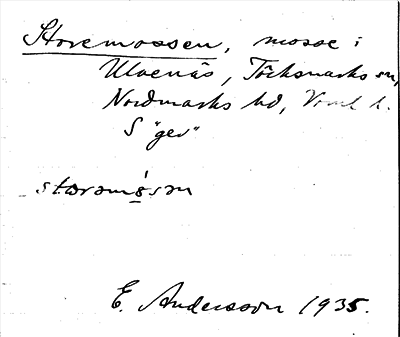 Storemossen, mosse i
Ulvenäs, Töcksmarks sn,
Nordmarks hd, Vrml l.
S "gev"
storomósən
E. Andersson 1935.